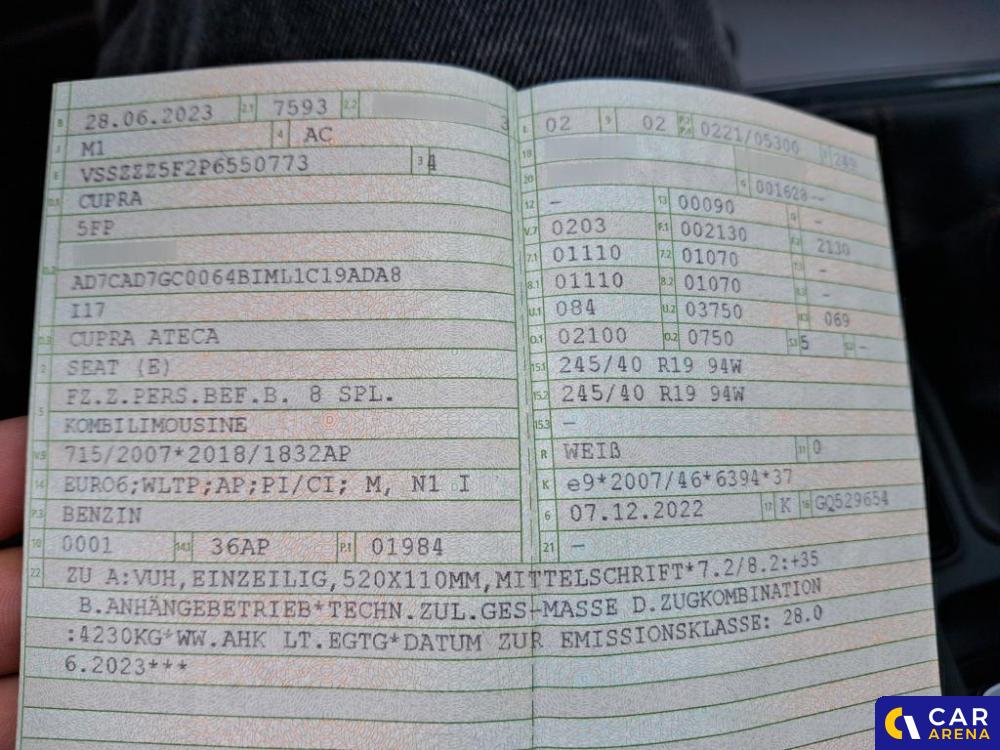 B 28.06.2023 2.1 7593 2.2 3
J M1 4 AC
E VSSZZZ5F2P6550773 3 4
D.1 CUPRA
5FP
D.2
AD7CAD7GC0064BIML1C19ADA8
I17
D.3 CUPRA ATECA
2 SEAT (E)
5 FZ.Z.PERS.BEF.B. 8 SPL.
KOMBILIMOUSINE
V.9 715/2007*2018/1832AP
14 EURO6;WLTP;AP;PI/CI; M, N1 I
P.3 BENZIN
10 0001 14.1 36AP P.1 01984
L 02 9 02 P.2 P.4 0221/05300 T 249
18
20 G 001628--
12 - 13 00090 Q -
V.7 0203 F.1 002130 F.2 2130
7.1 01110 7.2 01070 7.3 -
8.1 01110 8.2 01070 8.3 -
U.1 084 U.2 03750 U.3 069
O.1 02100 O.2 0750 S.1 5 S.2 -
15.1 245/40 R19 94W
15.2 245/40 R19 94W
15.3 -
R WEIß 11 0
K e9*2007/46*6394*37
6 07.12.2022 17 K 16 GQ529654
21 -
22 ZU A:VUH,EINZEILIG,520X110MM,MITTELSCHRIFT*7.2/8.2:+35
B.ANHÄNGEBETRIEB*TECHN.ZUL.GES-MASSE D.ZUGKOMBINATION
:4230KG*WW.AHK LT.EGTG*DATUM ZUR EMISSIONSKLASSE: 28.0
6.2023***
CAR
ARENA